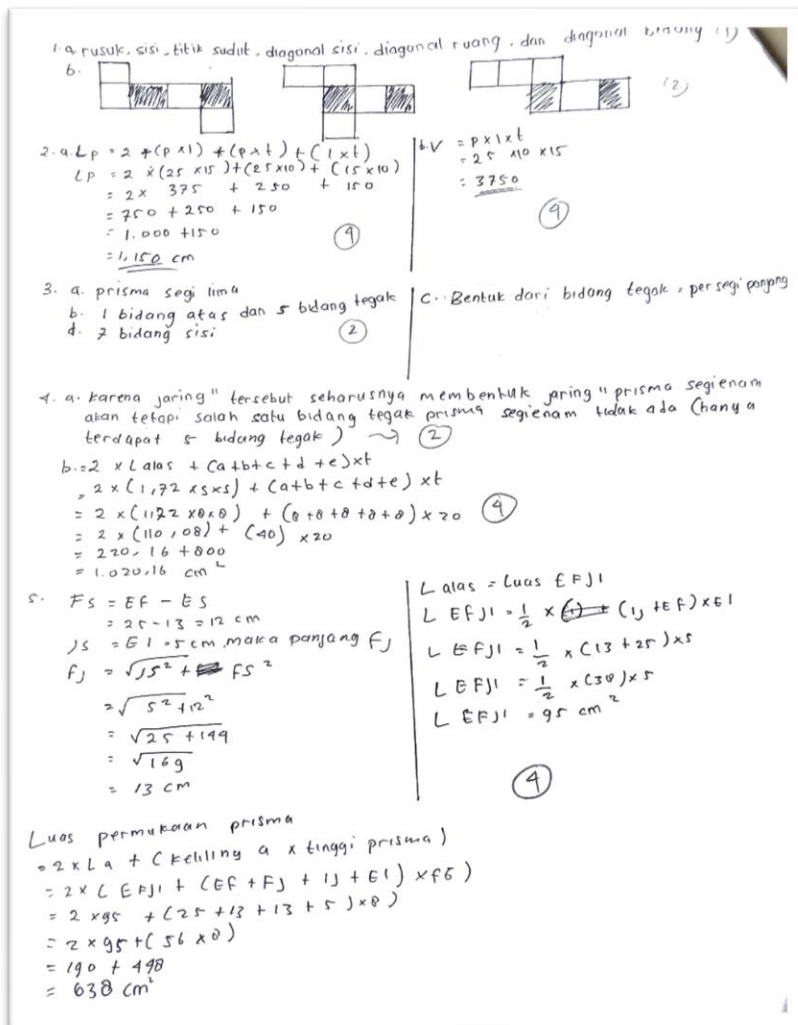 1. a rusuk, sisi, titik sudut, diagonal sisi, diagonal ruang, dan diagonal bidang (1)
b.
(2)
2. a. Lp = 2 + (p x l) + (p x t) + (l x t)
Lp = 2 x (25 x 15) + (25 x 10) + (15 x 10)
= 2 x 375 + 250 + 150
= 750 + 250 + 150
= 1.000 + 150
= 1,150 cm
(4)
b. V = p x l x t
= 25 x 10 x 15
= 3750
(4)
3. a. prisma segi lima
b. 1 bidang atas dan 5 bidang tegak
d. 7 bidang sisi
(2)
C. Bentuk dari bidang tegak = persegi panjang
4. a. karena jaring" tersebut seharusnya membentuk jaring" prisma segienam
akan tetapi salah satu bidang tegak prisma segienam tidak ada (hanya
terdapat 5 bidang tegak) → (2)
b. = 2 x L alas + (a+b+c+d+e) x t
= 2 x (1,72 x s x s) + (a+b+c+d+e) x t
= 2 x (1,72 x 8 x 8) + (8+8+8+8+8) x 20 (4)
= 2 x (110,08) + (40) x 20
= 220,16 + 800
= 1.020,16 cm²
5. FS = EF - ES
= 25 - 13 = 12 cm
JS = EI = 5 cm maka panjang FJ
FJ = √JS² + FS²
= √5² + 12²
= √25 + 144
= √169
= 13 cm
L alas = Luas EFJI
L EFJI = 1/2 x (IJ + EF) x EI
L EFJI = 1/2 x (13 + 25) x 5
L EFJI = 1/2 x (38) x 5
L EFJI = 95 cm²
(4)
Luas permukaan prisma
= 2 x La + (keliling a x tinggi prisma)
= 2 x L EFJI + (EF + FJ + IJ + EI) x FG)
= 2 x 95 + (25 + 13 + 13 + 5) x 8)
= 2 x 95 + (56 x 8)
= 190 + 448
= 638 cm²